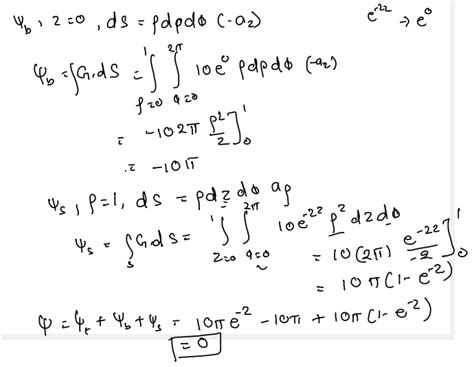 ψb, z=0, ds = ρdρdΦ (-az)
e^-2z → e^0
ψb = ∫G.ds = ∫ρ=0^1 ∫Φ=0^2π 10e^0 ρdρdΦ (-az)
= -10 2π ρ^2/2 ]0^1
= -10π
ψs, ρ=1, ds = ρdzdΦ aρ
ψs = ∫s G.ds = ∫z=0^1 ∫Φ=0^2π 10e^-2z ρ^2 dz dΦ
= 10(2π) e^-2z/-2 ]0^1
= 10π(1-e^-2)
ψ = ψt + ψb + ψs = 10πe^-2 - 10π + 10π(1-e^-2)
= 0